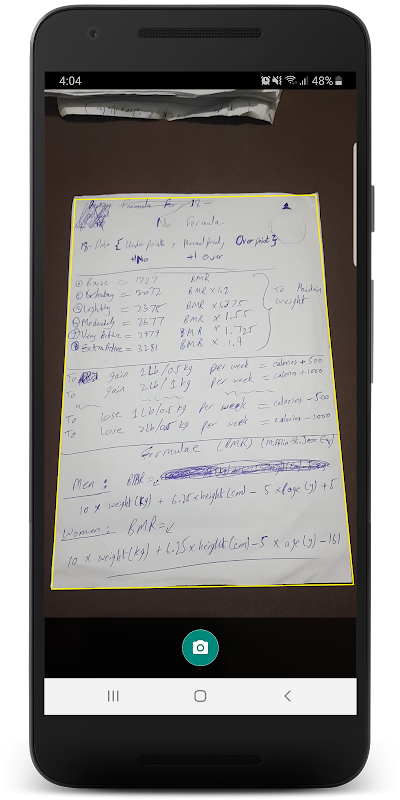 4:04 48%
Formula for
No Formula.
{ Under points, Normal point, Over point }
+1 over
① Basic = 1727 BMR
② = 2072 BMR x 1.2
③ Lightly = 2375 BMR x 1.375
④ Moderately = 2677 BMR x 1.55
Very Active = BMR x 1.725
Extra Active = 3281 BMR x 1.9
To Maintain
weight
To gain 1Lb/0.5 kg Per week = calories + 500
To gain 2Lb/1 kg Per week = calories + 1000
To lose 1 Lb/0.5 kg Per week = calories - 500
To lose 2Lb/0.5 kg Per week = calories - 1000
Formulae (BMR)
Men: BMR =
10 x weight (kg) + 6.25 x height (cm) - 5 x age (y) + 5
Women: BMR =
10 x weight (kg) + 6.25 x height (cm) - 5 x age (y) - 161